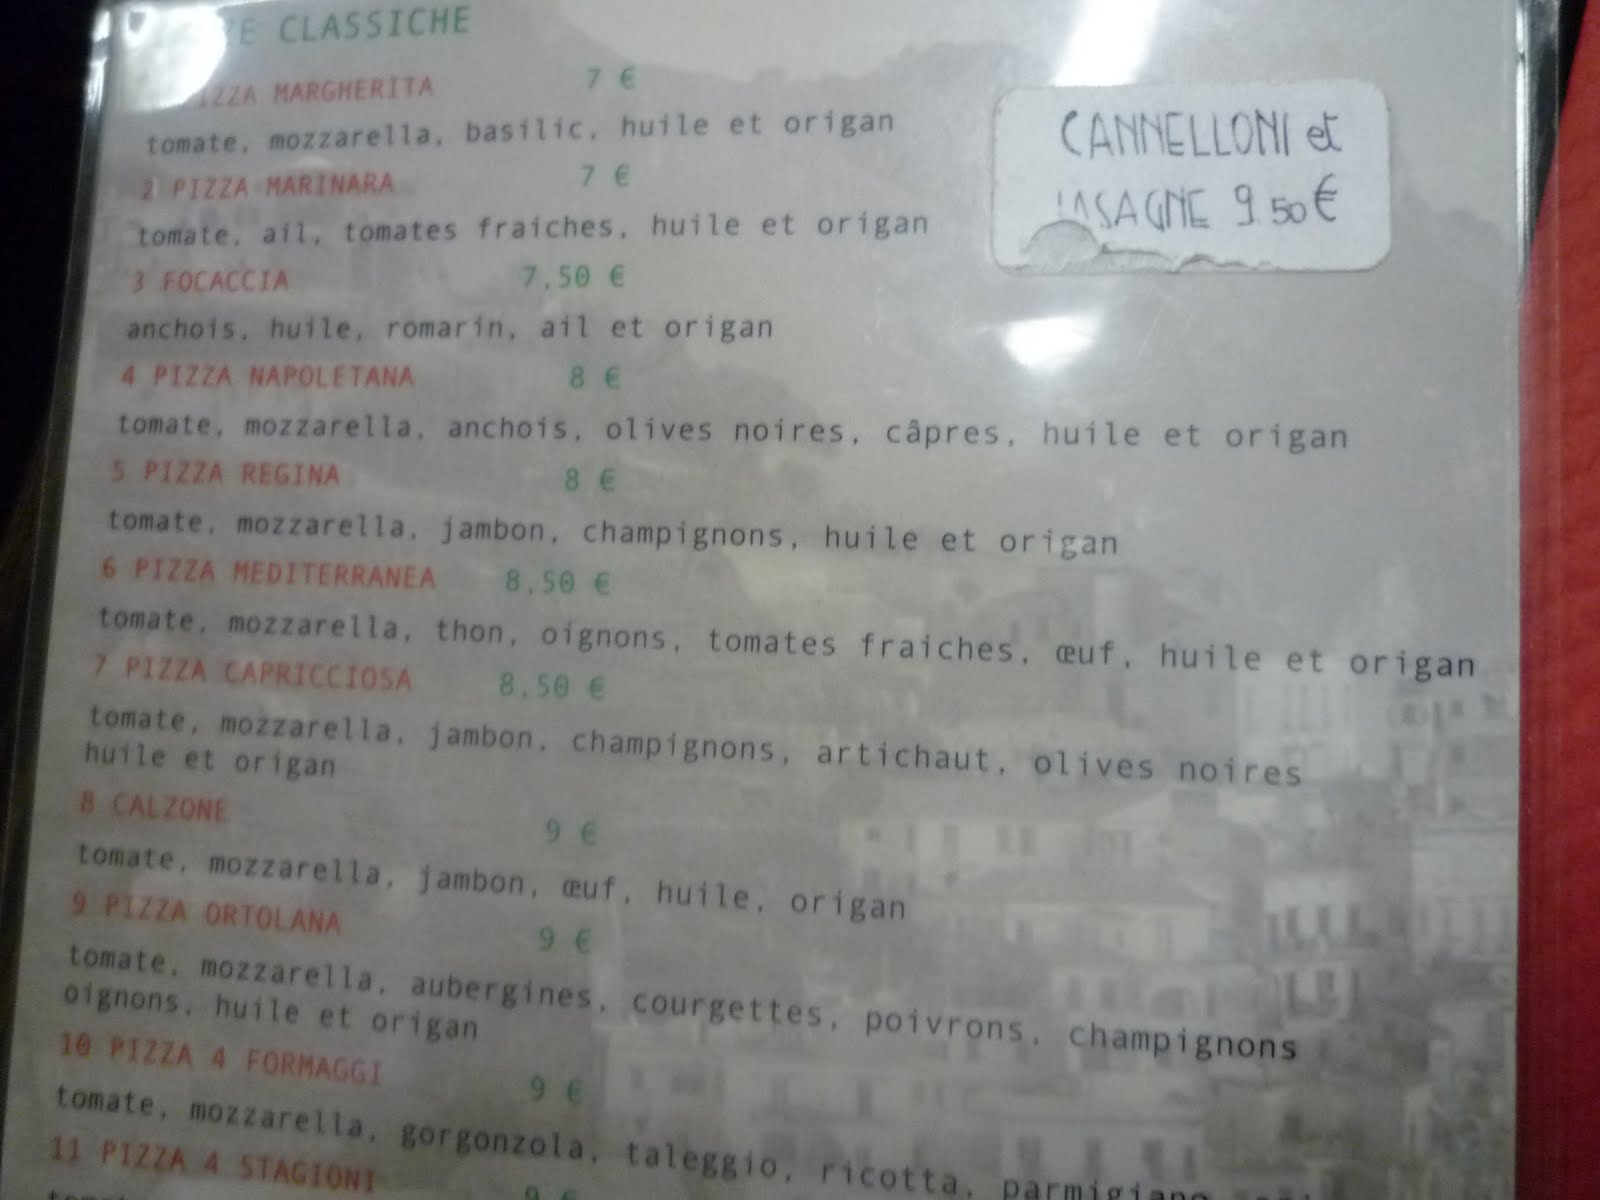 CLASSICHE
PIZZA MARGHERITA 7 €
tomate, mozzarella, basilic, huile et origan
2 PIZZA MARINARA 7 €
tomate, ail, tomates fraiches, huile et origan
3 FOCACCIA 7,50 €
anchois, huile, romarin, ail et origan
4 PIZZA NAPOLETANA 8 €
tomate, mozzarella, anchois, olives noires, câpres, huile et origan
5 PIZZA REGINA 8 €
tomate, mozzarella, jambon, champignons, huile et origan
6 PIZZA MEDITERRANEA 8,50 €
tomate, mozzarella, thon, oignons, tomates fraiches, œuf, huile et origan
7 PIZZA CAPRICCIOSA 8,50 €
tomate, mozzarella, jambon, champignons, artichaut, olives noires
huile et origan
8 CALZONE 9 €
tomate, mozzarella, jambon, œuf, huile, origan
9 PIZZA ORTOLANA 9 €
tomate, mozzarella, aubergines, courgettes, poivrons, champignons
oignons, huile et origan
10 PIZZA 4 FORMAGGI 9 €
tomate, mozzarella, gorgonzola, taleggio, ricotta, parmigiano
11 PIZZA 4 STAGIONI 9 €
CANNELLONI et
LASAGNE 9.50 €